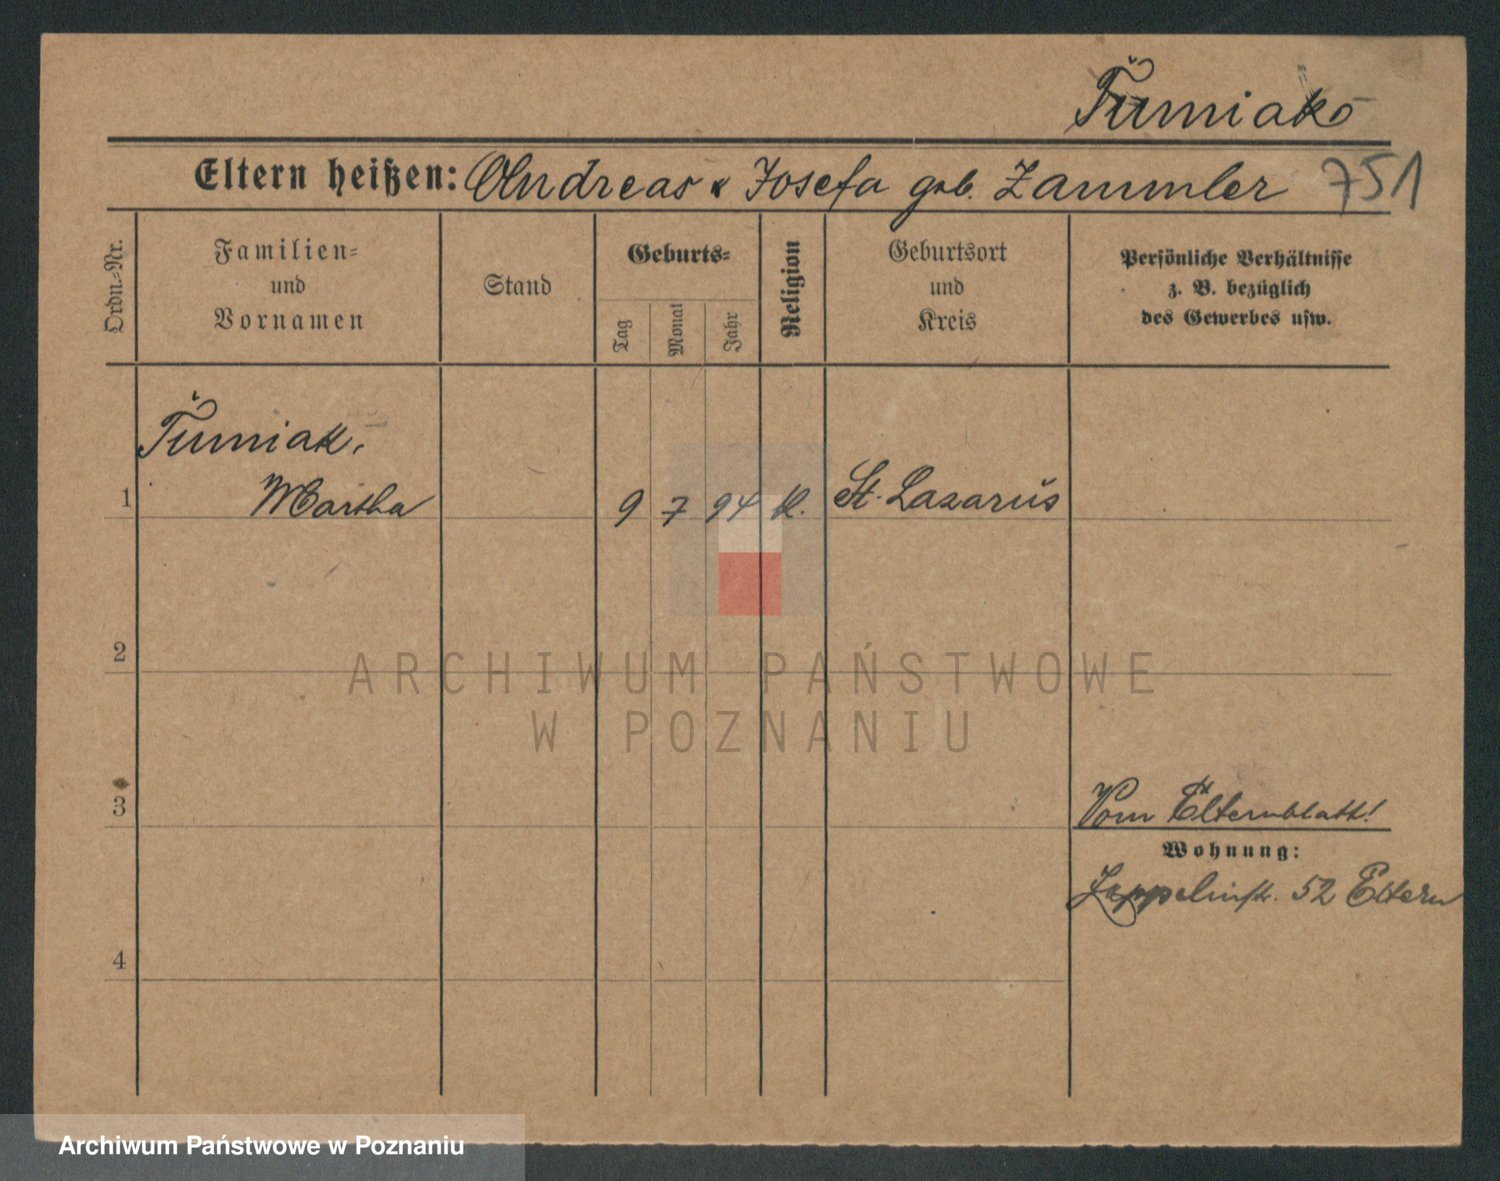 Tumiak
Eltern heißen: Andreas & Josefa geb. Zammler 751
Ordn.-Nr.
Familien-
und
Vornamen
Stand
Geburts-
Tag
Monat
Jahr
Religion
Geburtsort
und
Kreis
Persönliche Verhältnisse
z. B. bezüglich
des Gewerbes usw.
Tumiak,
1 Martha 9 7 94 k. St. Lazarus
2
ARCHIWUM PAŃSTWOWE
W POZNANIU
3
Vom Elternblatt!
Wohnung:
Zeppelinstr. 52 Eltern
4
Archiwum Państwowe w Poznaniu